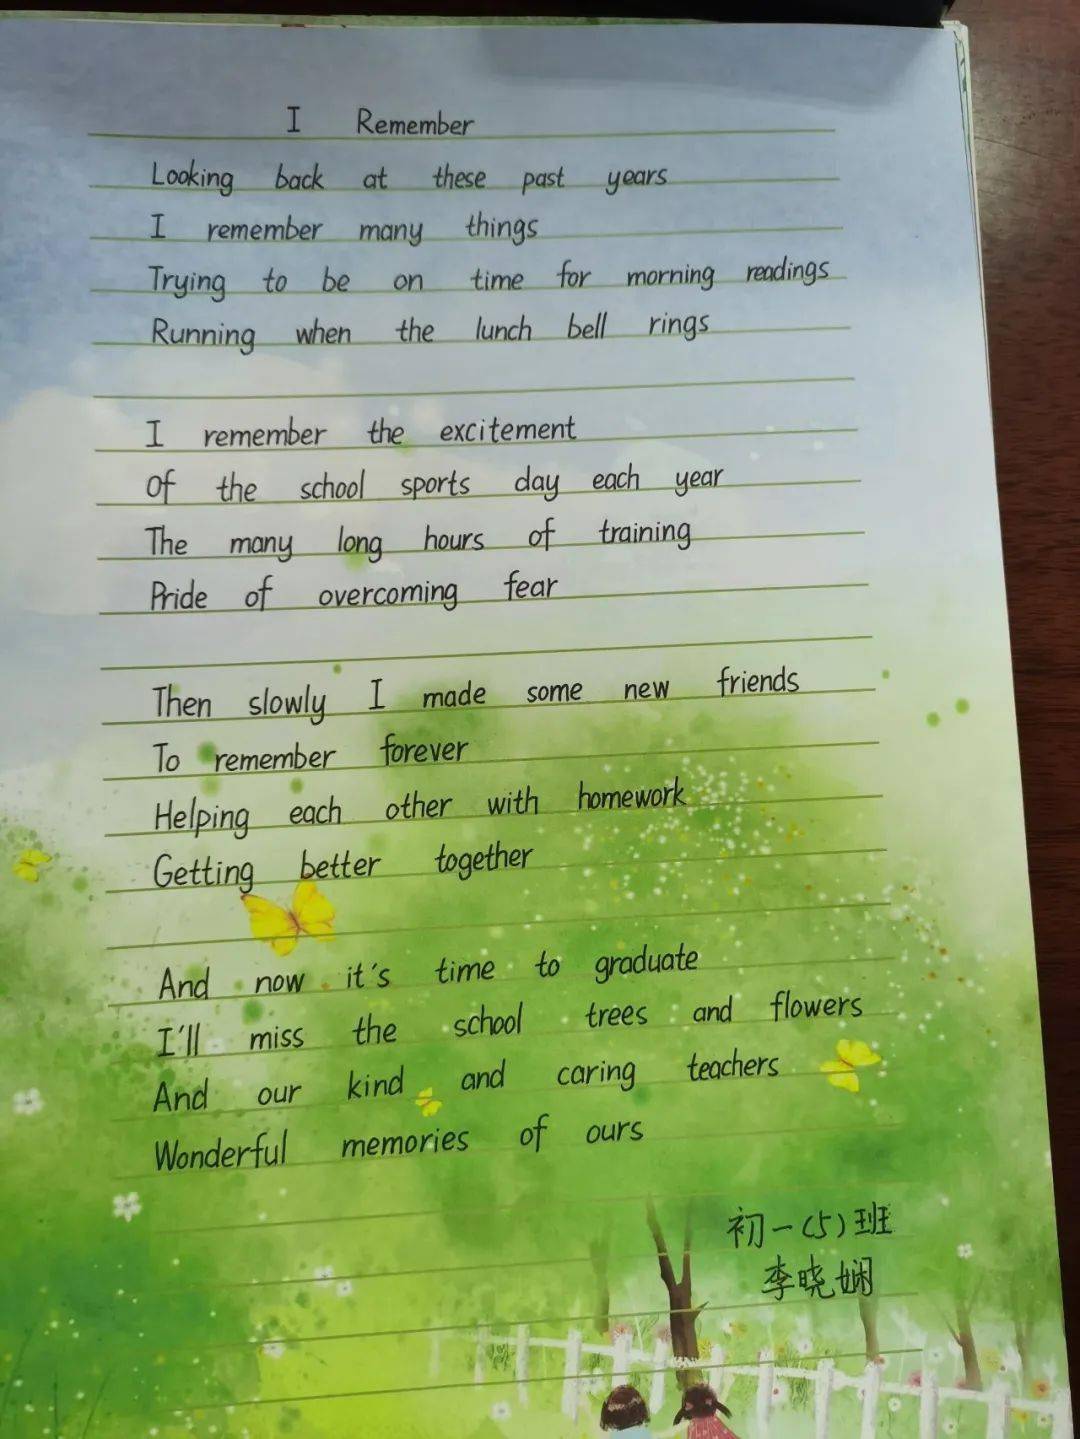 I Remember
Looking back at these past years
I remember many things
Trying to be on time for morning readings
Running when the lunch bell rings
I remember the excitement
Of the school sports day each year
The many long hours of training
Pride of overcoming fear
Then slowly I made some new friends
To remember forever
Helping each other with homework
Getting better together
And now it's time to graduate
I'll miss the school trees and flowers
And our kind and caring teachers
Wonderful memories of ours
初一(5)班
李晓娴